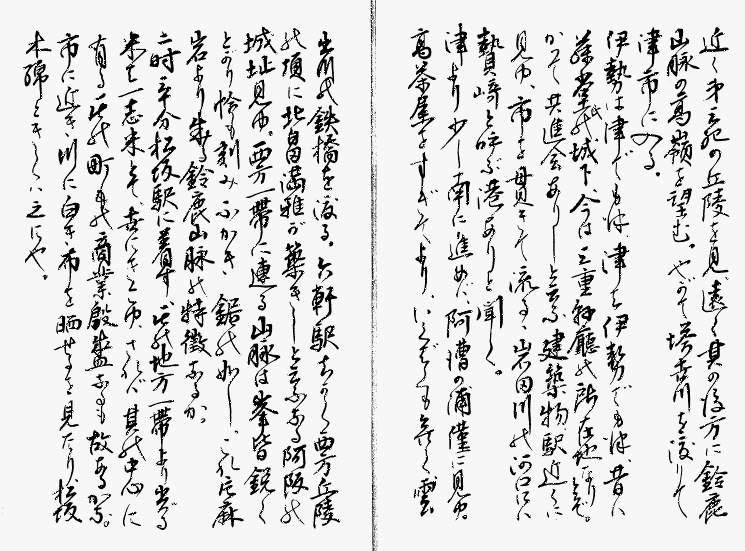 近く第三紀の丘陵を見、遠く其の後方に鈴鹿
山脈の高嶺を望む。やがて塔世川を渡りて
津市に入る。
伊勢は津でもは、津は伊勢でもは、昔は
藤堂氏の城下、今は三重県庁の所在地なりとぞ。
かつて共進会ありしと云ふ建築物駅近くに
見ゆ、市を貫きて流るゝ岩田川の河口に
贄崎と呼ぶ港ありと聞く。
津より少し南に進めば、阿漕の浦僅に見ゆ。
高茶屋をすぎてより、いくばくも無く雲
出川の鉄橋を渡る。六軒駅ちかく西方丘陵
の頃に北畠満雅が築きしと云ふなる阿阪の
城址見ゆ。西方一帯に連る山脈は峯皆鋭く
とがり皆も刻みふかき、鋸の如し、これ片麻
岩より成る鈴鹿山脈の特徴なるか。
二時三十分松坂駅に着す、此の地方一帯より出づる
米を一志米とて世にきこゆ、されば其の中心に
有る此の町の商業殷盛なるも故あるかな。
市に近き川に白き布を晒せるを見たり松坂
木綿ときくは之にや。